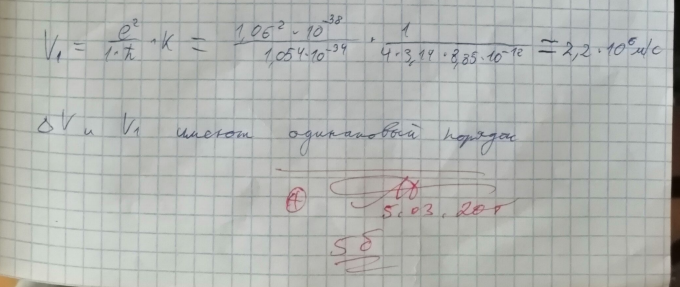 V₁ = e²/(1·ħ) · K = 1,06² · 10⁻³⁸/(1,054·10⁻³⁴) · 1/(4·3,14·8,85·10⁻¹²) ≈ 2,2·10⁶ м/с
ΔV и V₁ имеют одинаковый порядок
5.03.20г
5 б